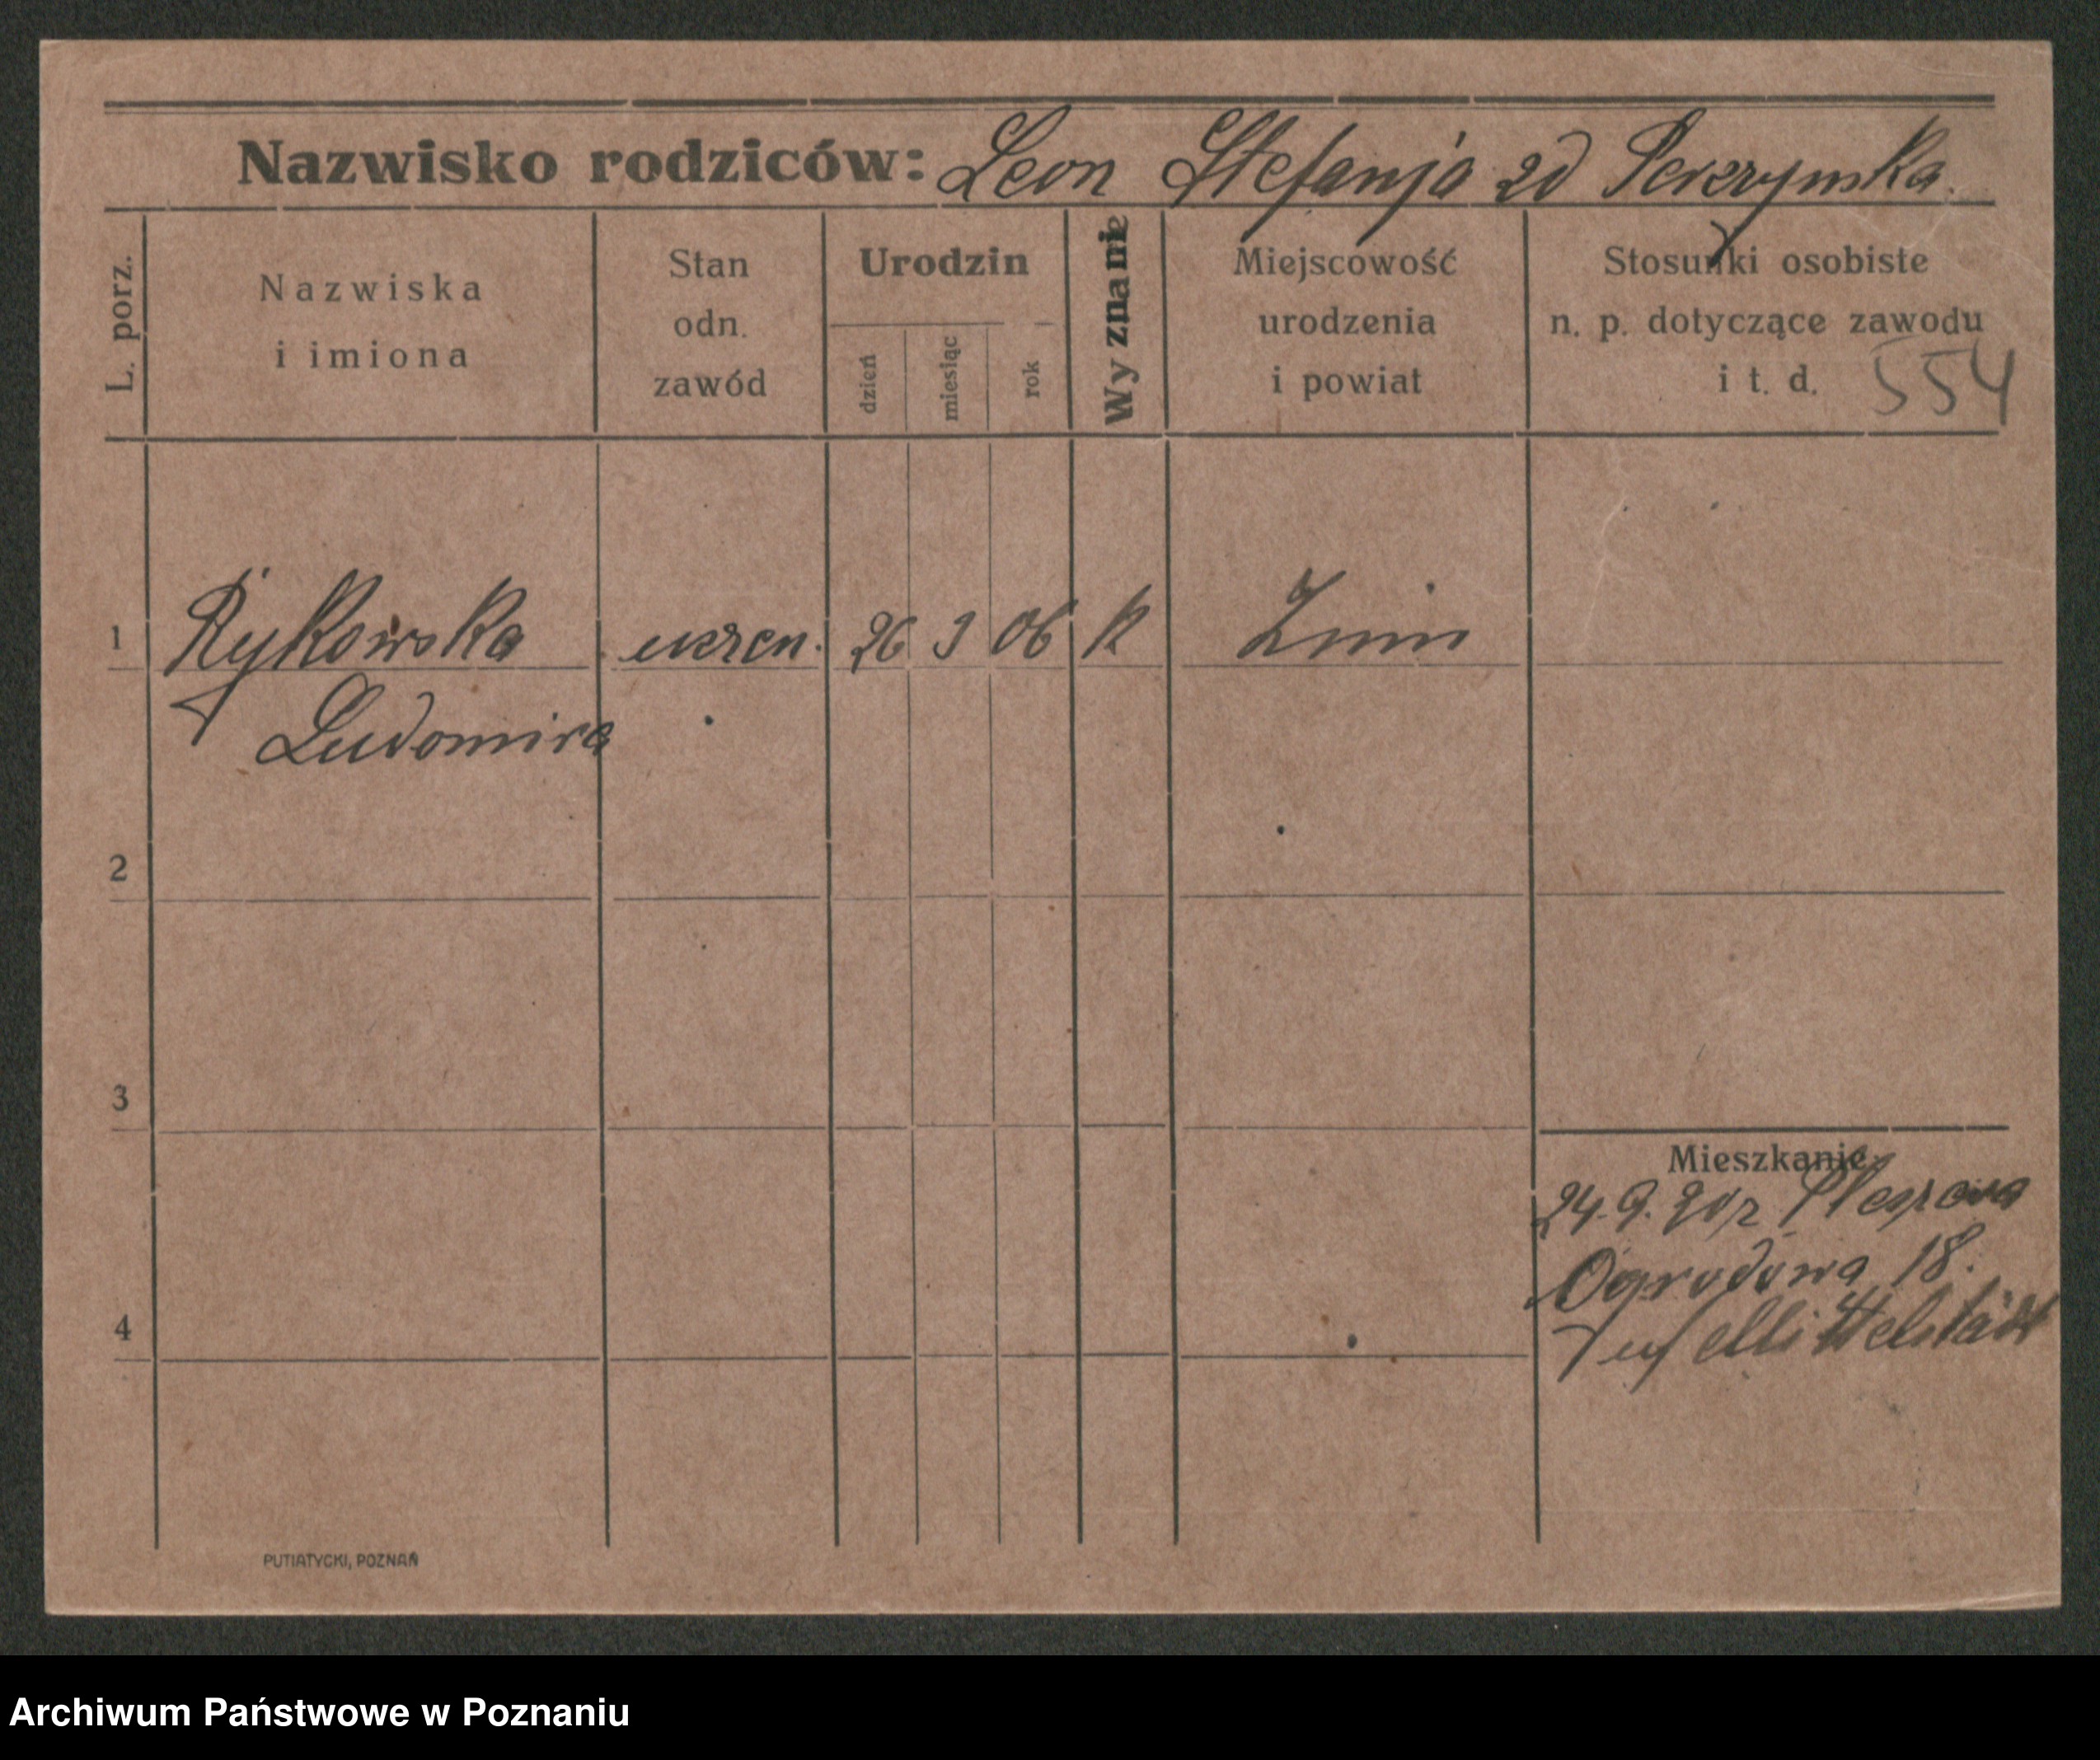 Nazwisko rodziców: Leon Stefanja zd Perzynska.
L. porz.
Nazwiska
i imiona
Stan
odn.
zawód
Urodzin
dzień
miesiąc
rok
Wyznanie
Miejscowość
urodzenia
i powiat
Stosunki osobiste
n. p. dotyczące zawodu
i t. d.
554
1 Rykowska uczen. 26 3 06 k Znin
Ludomira
2
3
4
Mieszkanie
24.9.20 r
Ogrodowa 18.
PUTIATYCKI, POZNAŃ
Archiwum Państwowe w Poznaniu